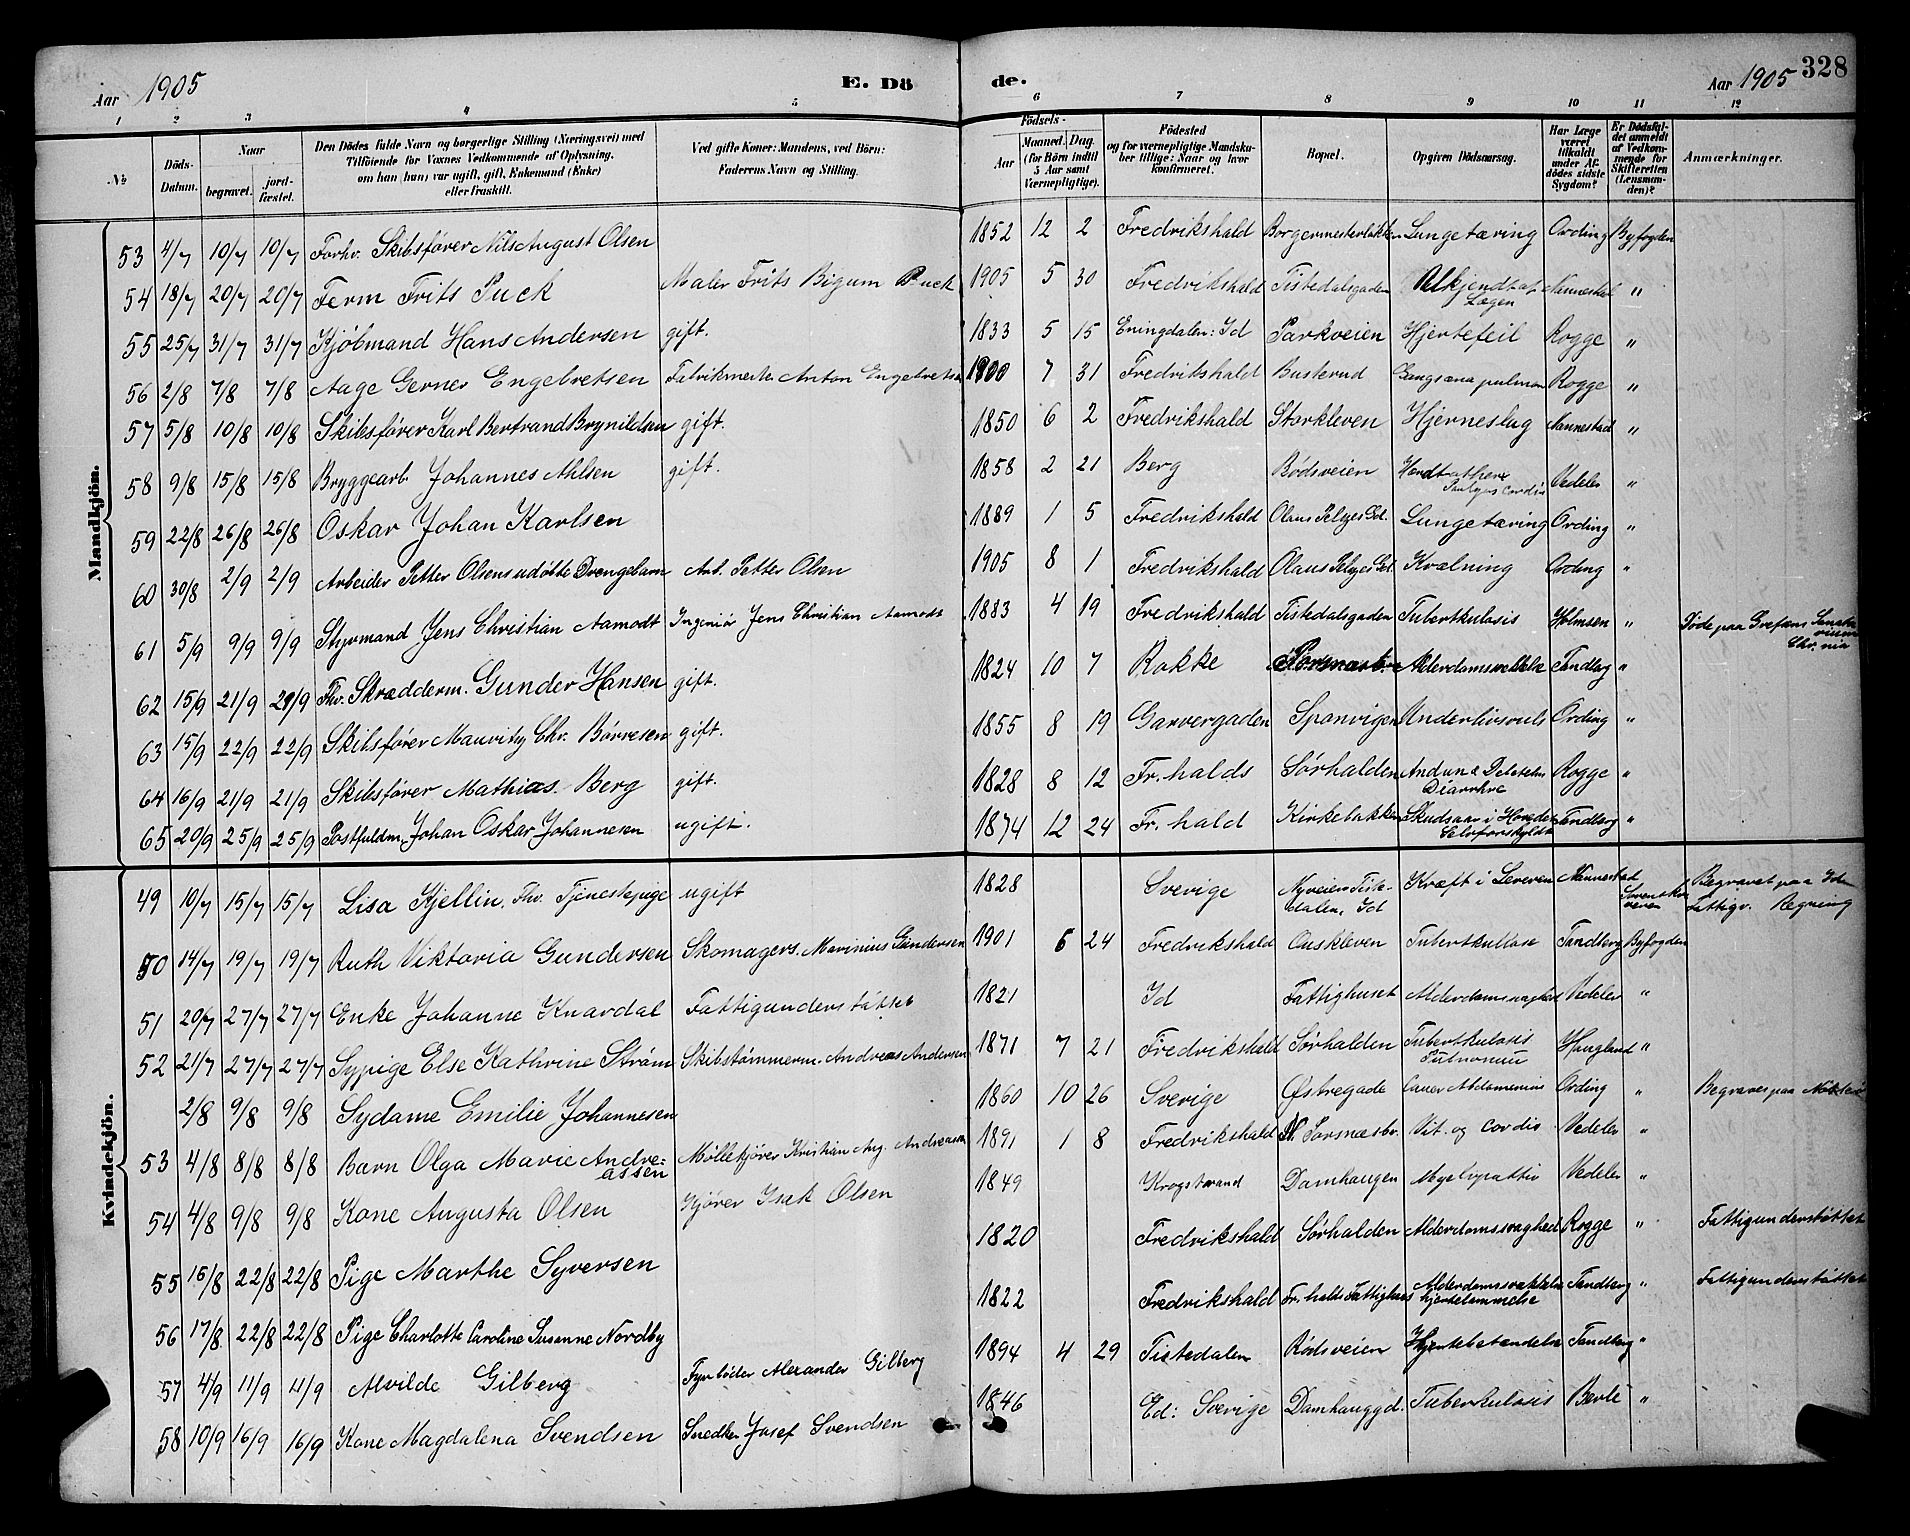 Aar 1905 E. Dö
de. Aar 1905 328
1 2 3 4 5 6 7 8 9 10 11 12
№ Döds-Datum. Naar begravet. jord-fæstet. Den Dödes fulde Navn og borgerlige Stilling (Næringsvei) med Tilföiende for Voxnes Vedkommende af Oplysning, om han (hun) var ugift, gift, Enkemand (Enke) eller fraskilt. Ved gifte Koner: Mandens, ved Börn: Faderens Navn og Stilling.
Födsels- Aar Maaned. Dag. (for Börn indtil 5 Aar samt Værnepligtige). Födested og for værnepligtige Mandskaber tillige: Naar og hvor konfirmeret. Bopæl. Opgiven Dödsaarsag. Har Læge været tilkaldt under Afdödes sidste Sygdom? Er Dödsfaldet anmeldt af Vedkommende for Skifteretten (Lensmanden)? Anmærkninger.
Mandkjön.
53 4/7 10/7 10/7 Forhv. Skibsfører Nils August Olsen 1852 12 2 Fredrikshald Borgermesterløkken Lungetæring Ording Byfogden
54 18/7 20/7 20/7 Ferm Frits Puck Maler Frits Bigum Puck 1905 5 30 Fredrikshald Tistedalsgaden Lægen Nannestad "
55 25/7 31/7 31/7 Kjøbmand Hans Andersen gift. 1833 5 15 Eningdalen: Id Parkveien Hjertefeil Rogge "
56 2/8 7/8 7/8 Aage Gerner Engebretsen Fabrikmester Anton Engebretsen 1900 7 31 Fredrikshald Busterud Rogge "
57 5/8 10/8 10/8 Skibsfører Karl Bertrand Brynildsen gift. 1850 6 2 Fredrikshald Storkleven Hjerneslag Nannestad "
58 9/8 15/8 15/8 Bryggearb Johannes Ahlsen gift. 1858 2 21 Berg Rødsveien cordis Vedeler "
59 22/8 26/8 26/8 Oskar Johan Karlsen 1889 1 5 Fredrikshald Olaus Gd. Lungetæring Ording "
60 30/8 2/9 2/9 Arbeider Petter Olsens udøbte Drengebarn Arb. Petter Olsen 1905 8 1 Fredrikshald Olaus Gd. Kvælning Ording "
61 5/9 9/9 9/9 Styrmand Jens Christian Aamodt Ingeniør Jens Christian Aamodt 1883 4 19 Fredrikshald Tistedalsgaden Tuberkulosis Holmsen " Døde paa Grefsens Sanatorium Chr.nia
62 15/9 21/9 21/9 Fhv. Skrædderm. Gunder Hansen gift. 1824 10 7 Rokke Alderdomssvækkelse Tandberg "
63 15/9 22/9 22/9 Skibsfører Mauritz Chr. Børresen gift. 1855 8 19 Garvergaden Spanvigen Underlivssvulst Ording "
64 16/9 21/9 21/9 Skibsfører Mathias Berg gift. 1828 8 12 Fr.halds Sørhalden Diarrhve Rogge "
65 20/9 25/9 25/9 Postfuldm. Johan Oskar Johannesen ugift. 1874 12 24 Fr.hald Kirkebakken Skudsaar i Hovedet Selvforskyldt Tandberg "
Kvindekjön.
49 10/7 15/7 15/7 Lisa Kjellin, Fhv. Tjenestepige ugift 1828 Sverige Nyveien Tistedalen, Id Kræft i Leveren Nannestad Begravet paa Id Fattigv. Regning
50 14/7 19/7 19/7 Ruth Viktoria Gundersen Skomagers. Marinius Gundersen 1901 6 24 Fredrikshald Ouskleven Tuberkulose Tandberg Byfogden
51 20/7 27/7 27/7 Enke Johanne Knardal Fattigunderstøttet 1821 Id Fattighuset Alderdomssvaghed Vedeler "
52 21/7 27/7 27/7 Sypige Else Kathrine Strøm Skibstømmerm. Andreas Andersen 1871 7 21 Fredrikshald Sørhalden Tuberkulosis Haugland "
2/8 9/8 9/8 Sydame Emilie Johannesen 1860 10 26 Sverige Østregade Ording " Begraves paa
53 4/8 8/8 8/8 Barn Olga Marie Andreassen Møllekjører Kristian Aug. Andreassen 1891 1 8 Fredrikshald Vit. og cordis Vedeler "
54 4/8 9/8 9/8 Kone Augusta Olsen Kjører Isak Olsen 1849 Krogstrand Damhaugen Vedeler "
55 16/8 22/8 22/8 Pige Marthe Syversen 1820 Fredrikshald Sørhalden Alderdomssvaghed Rogge " Fattigunderstøttet
56 17/8 22/8 22/8 Pige Charlotte Caroline Susanne Nordby 1822 Fredrikshald Fr.halds Fattighus Alderdomssvækkelse hjertelammelse Tandberg " Fattigunderstøttet
57 4/9 11/9 11/9 Alvilde Gilberg Fyrbøder Alexander Gilberg 1894 4 29 Tistedalen Rødsveien Hjertebetændelse Tandberg "
58 10/9 16/9 16/9 Kone Magdalena Svendsen Snedker Josef Svendsen 1846 Ed: Sverige Damhauggd. Tuberkulosis "